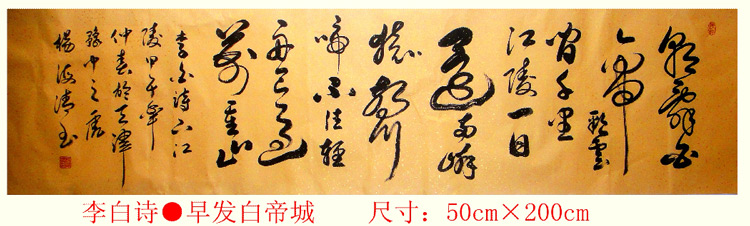 朝辞白
帝彩雲
间千里
江陵一日
还两岸
猿声
啼不住轻
舟已过
万重山
李白诗下江
陵甲午年
仲春於天津
李白诗●早发白帝城 尺寸：50cm×200cm